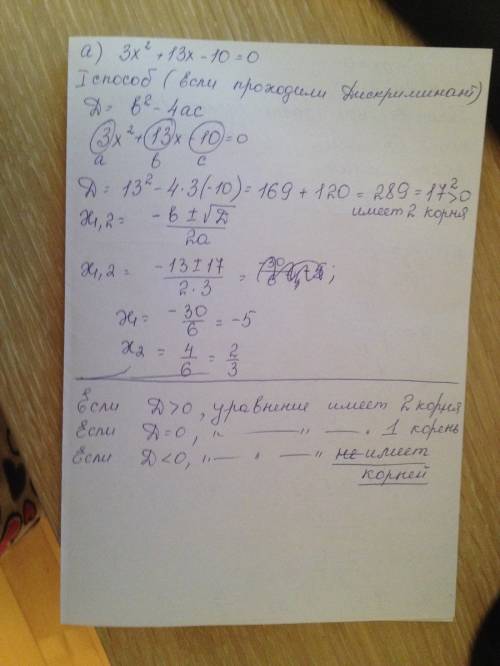 а) 3x² + 13x - 10 = 0
I способ (если проходили Дискриминант)
D = b² - 4ac
3x² + 13x - 10 = 0
a b c
D = 13² - 4·3(-10) = 169 + 120 = 289 = 17² > 0
имеет 2 корня
x1,2 = -b ± √D / 2a
x1,2 = -13 ± 17 / 2·3 = ;
x1 = -30/6 = -5
x2 = 4/6 = 2/3
Если D>0, уравнение имеет 2 корня
Если D=0, „ — „ — „ 1 корень
Если D<0, „ — „ — „ не имеет
корней